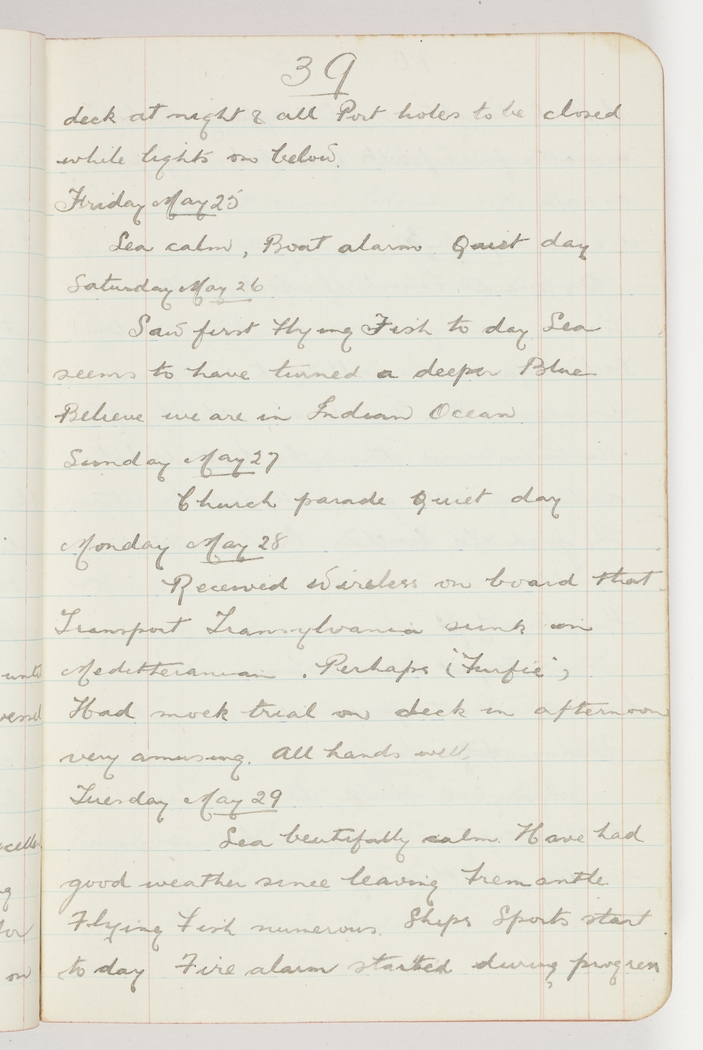 39
deck at night & all Port holes to be closed
while lights on below.
Friday May 25
Sea calm, Boat alarm Quiet day
Saturday May 26
Saw first Flying Fish to day Sea
seems to have turned a deeper Blue
Believe we are in Indian Ocean
Sunday May 27
Church parade Quiet day
Monday May 28
Received Wireless on board that
Transport Transylvania sunk in
Mediterranian. Perhaps "Furfie",
Had mock trial on deck in afternoon
very amusing. All hands well.
Tuesday May 29
Sea beutifully calm. Have had
good weather since leaving Fremantle.
Flying Fish numerous. Ships Sports start
to day Fire alarm started during progress
unto
vessel
on